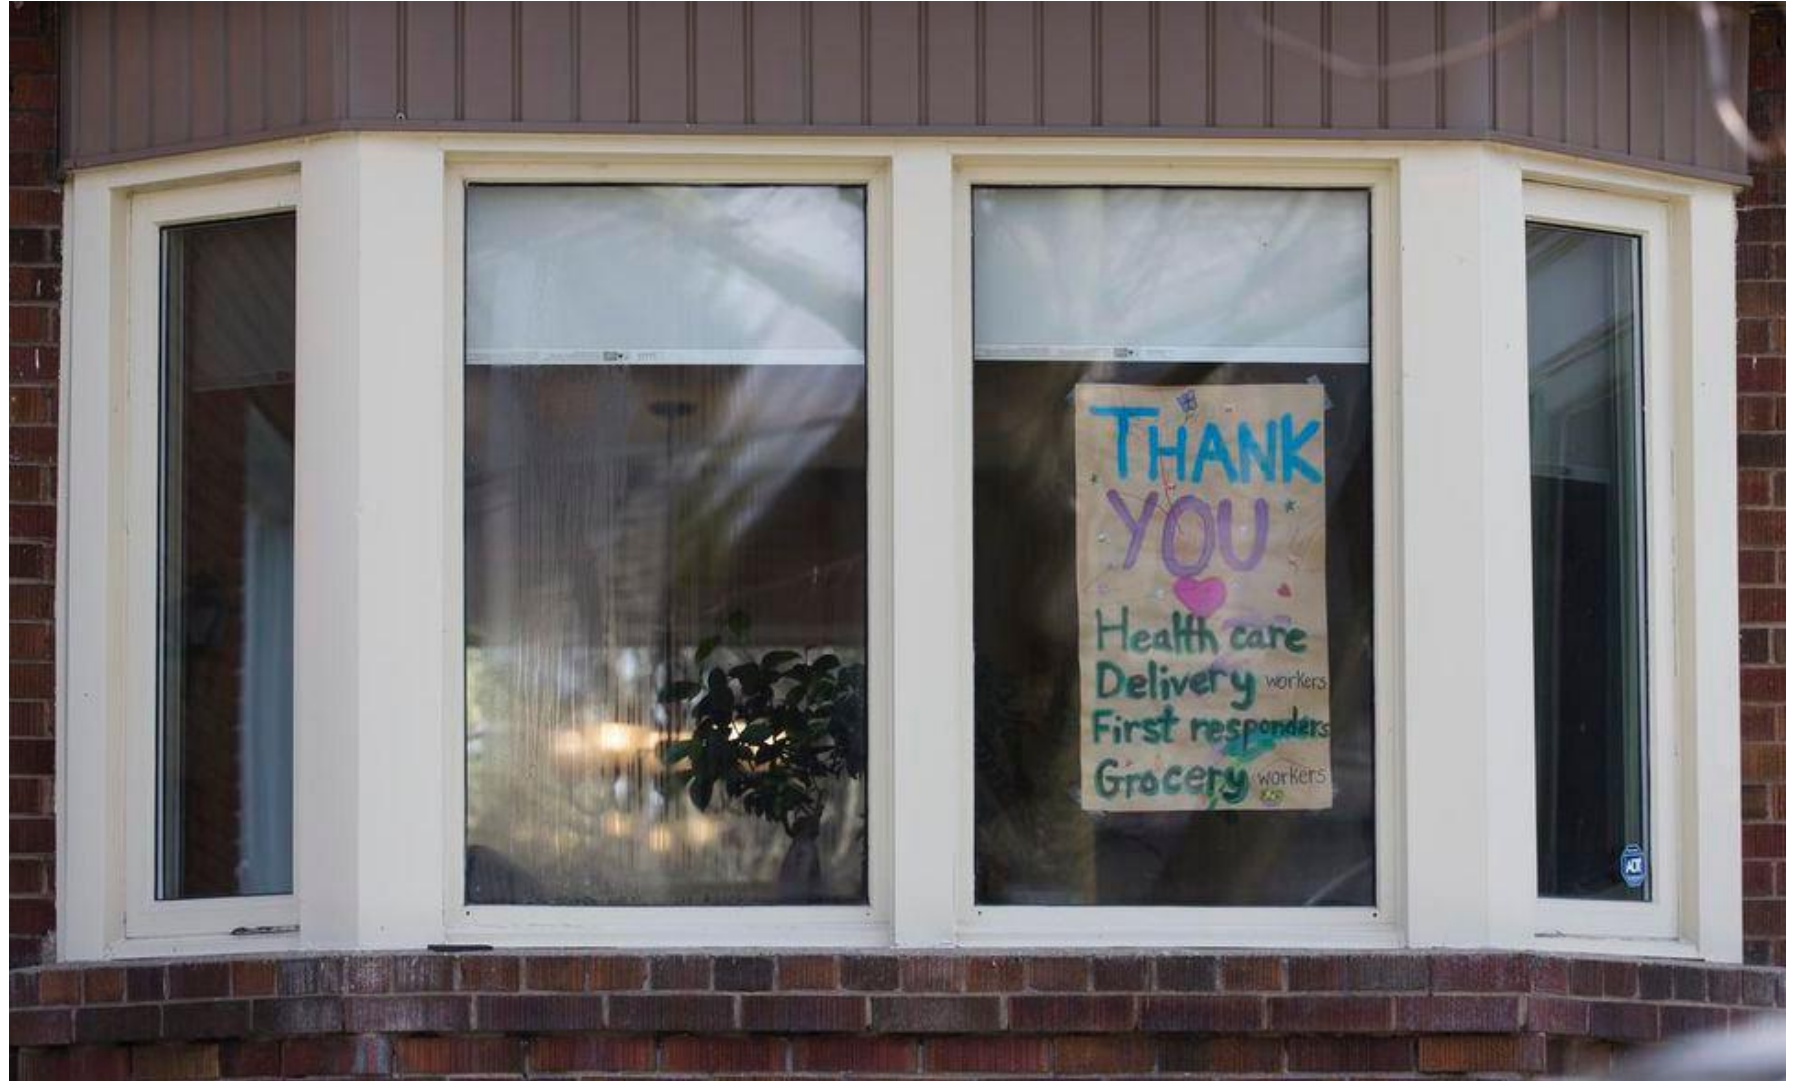 THANK
YOU
Health care
Delivery workers
First responders
Grocery workers
ADT